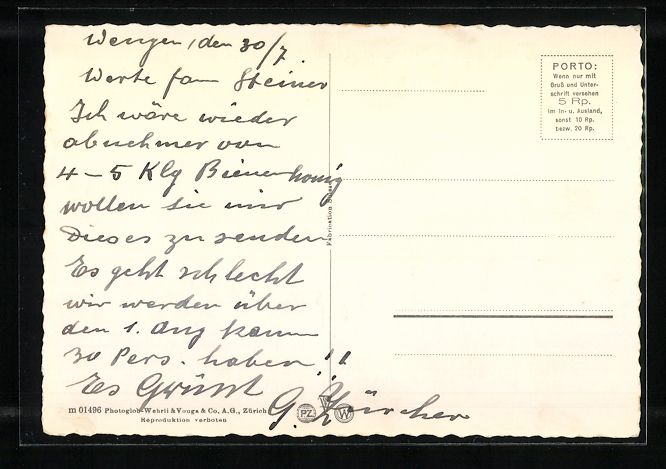 Wengen, den 30/7
Werte fam Steiner
Ich wäre wieder
abnehmer von
4 – 5 Klg Bienenhonig
wollen sie mir
Dieses zu senden
Es geht schlecht
wir werden über
den 1. Aug kaum
30 Pers. haben !!
Es Grüsst
G. Zürcher
m 01496 Photoglob-Wehrli & Vouga & Co., A.G., Zürich
Reproduktion verboten
PZ
W
Fabrication Suisse
PORTO:
Wenn nur mit
Gruß und Unter-
schrift versehen
5 Rp.
im In- u. Ausland,
sonst 10 Rp.
bezw. 20 Rp.